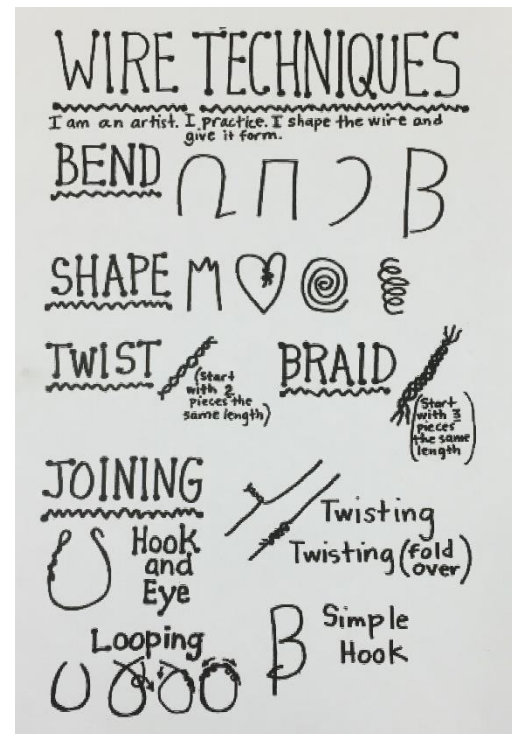 WIRE TECHNIQUES
I am an artist. I practice. I shape the wire and
give it form.
BEND
SHAPE
TWIST
(Start
with 2
pieces the
same length)
BRAID
(Start
with 3
pieces
the same
length)
JOINING
Hook
and
Eye
Twisting
Twisting (fold
over)
Looping
Simple
Hook